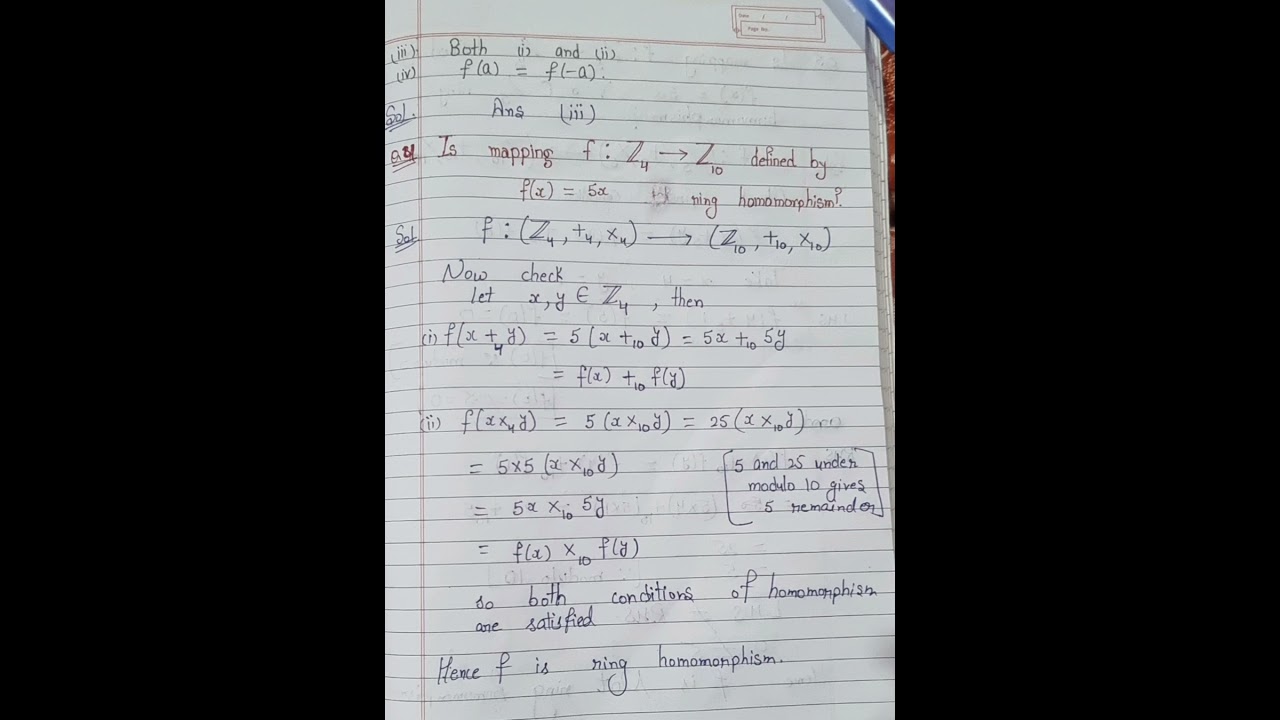 Date / /
Page No.
(iii) Both (i) and (ii)
(iv) f(a) = f(-a).
Sol. Ans (iii)
Q4 Is mapping f : ℤ₄ → ℤ₁₀ defined by
f(x) = 5x ring homomorphism?
Sol. f : (ℤ₄, +₄, ×₄) → (ℤ₁₀, +₁₀, ×₁₀)
Now check
let x, y ∈ ℤ₄, then
(i) f(x +₄ y) = 5(x +₁₀ y) = 5x +₁₀ 5y
= f(x) +₁₀ f(y)
(ii) f(x ×₄ y) = 5(x ×₁₀ y) = 25(x ×₁₀ y)
= 5×5 (x ×₁₀ y) [5 and 25 under
modulo 10 gives
= 5x ×₁₀ 5y 5 remainder]
= f(x) ×₁₀ f(y)
so both conditions of homomorphism
are satisfied
Hence f is ring homomorphism.